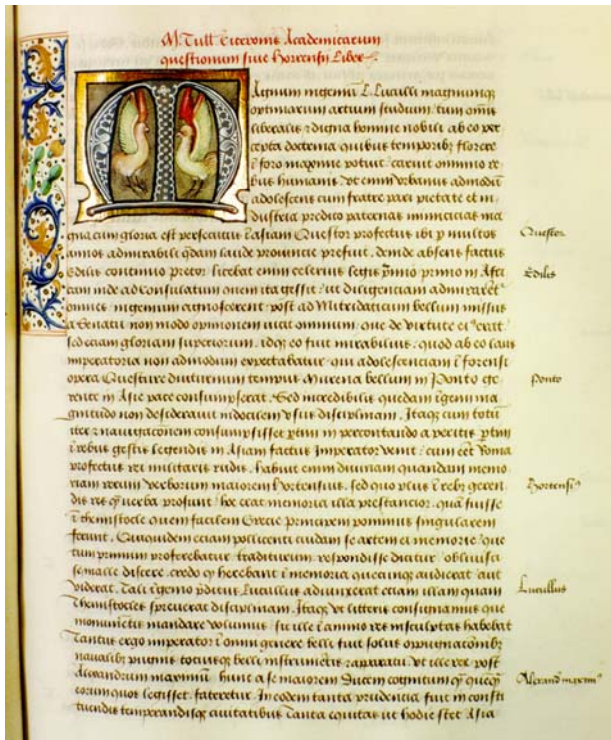 M. Tull Ciceronis Academicarum
questionum siue Hortensii Liber
Magnum ingenium L. Luculli magnumqꝫ
optimarum artium studium, tum omīs
liberalis & digna homine nobili ab eo per
cepta doctrina quibus temporibꝫ florere
ī foro maxime potuit caruit omnino re
bus humanis. Vt enim vrbanus admodū
adolescens cum fratre pari pietate et in
dustria predico paternas inimicicias ma
gna cum gloria est persecutus ī Asiam Questor profectus ibi p̱ multos
Questor
annos admirabili q̄dam laude prouincie prefuit. deinde absens factus
Edilis continuo pretor licebat enim celerius legis p̄mio primo in Afri
Edilis
cam inde ad Consulatum quem ita gessit. ut diligenciam admirarēt᷑
omnes ingenium cognoscerent. post ad Mitridaticum bellum missus
a Senatu non modo opinionem vicit omnium que de virtute eiꝰ erat
sed eciam gloriam superiorum. idqꝫ eo fuit mirabilius. quod ab eo laus
imperatoria non admodum expectabatur qui adolescenciam ī forensi
opera Questure diuturnum tempus Murena bellum in Ponto ge
Ponto
rente in Asie pace consumpserat. Sed incredibilis quedam īgenii ma
gnitudo non desiderauit indocilem vsus disciplinam. Itaqꝫ cum totū
iter & nauigacōnem consumpsisset ꝑtim in percontando a peritis ꝑtim
ī rebus gestis legendis in Asiam factus Imperator venit. cum eēt Roma
profectus rei militaris rudis. habuit enim diuinam quandam memo
riam rerum verborum maiorem hortensius. sed quo plus ī rebꝫ geren
Hortensiꝰ
dis res qꝫ verba prosunt hoc erat memoria illa prestancior. quā fuisse
ī themistocle quem facilem Grecie principem ponimus singularem
ferunt. Quiquidem eciam pollicenti cuidam se artem ei memorie que
tum primum proferebatur traditurum. respondisse dicitur obliuisci
se malle discere. credo qꝫ herebant ī memoria quecunqꝫ audierat aut
viderat. Tali īgenio p̄ditus Lucullus adiunxerat eciam illam quam
Lucullus
Themistocles spreuerat disciplinam. Itaqꝫ vt litteris consignamus que
monumentis mandare volumus sic ille ī animo res insculptas habebat
Tantus ergo imperator ī omni genere belli fuit
naualibꝫ pugnis tociusqꝫ belli instrumētis & apparatu vt ille rex post
Alexandrum maximū hunc a se maiorem Ducem cognitum
Alexand᷑ maximꝰ
eorum quos legisset. fateretur. In eodem tanta prudencia fuit in consti
tuendis temperandisqꝫ ciuitatibus Tanta equitas ut hodie stet Asia